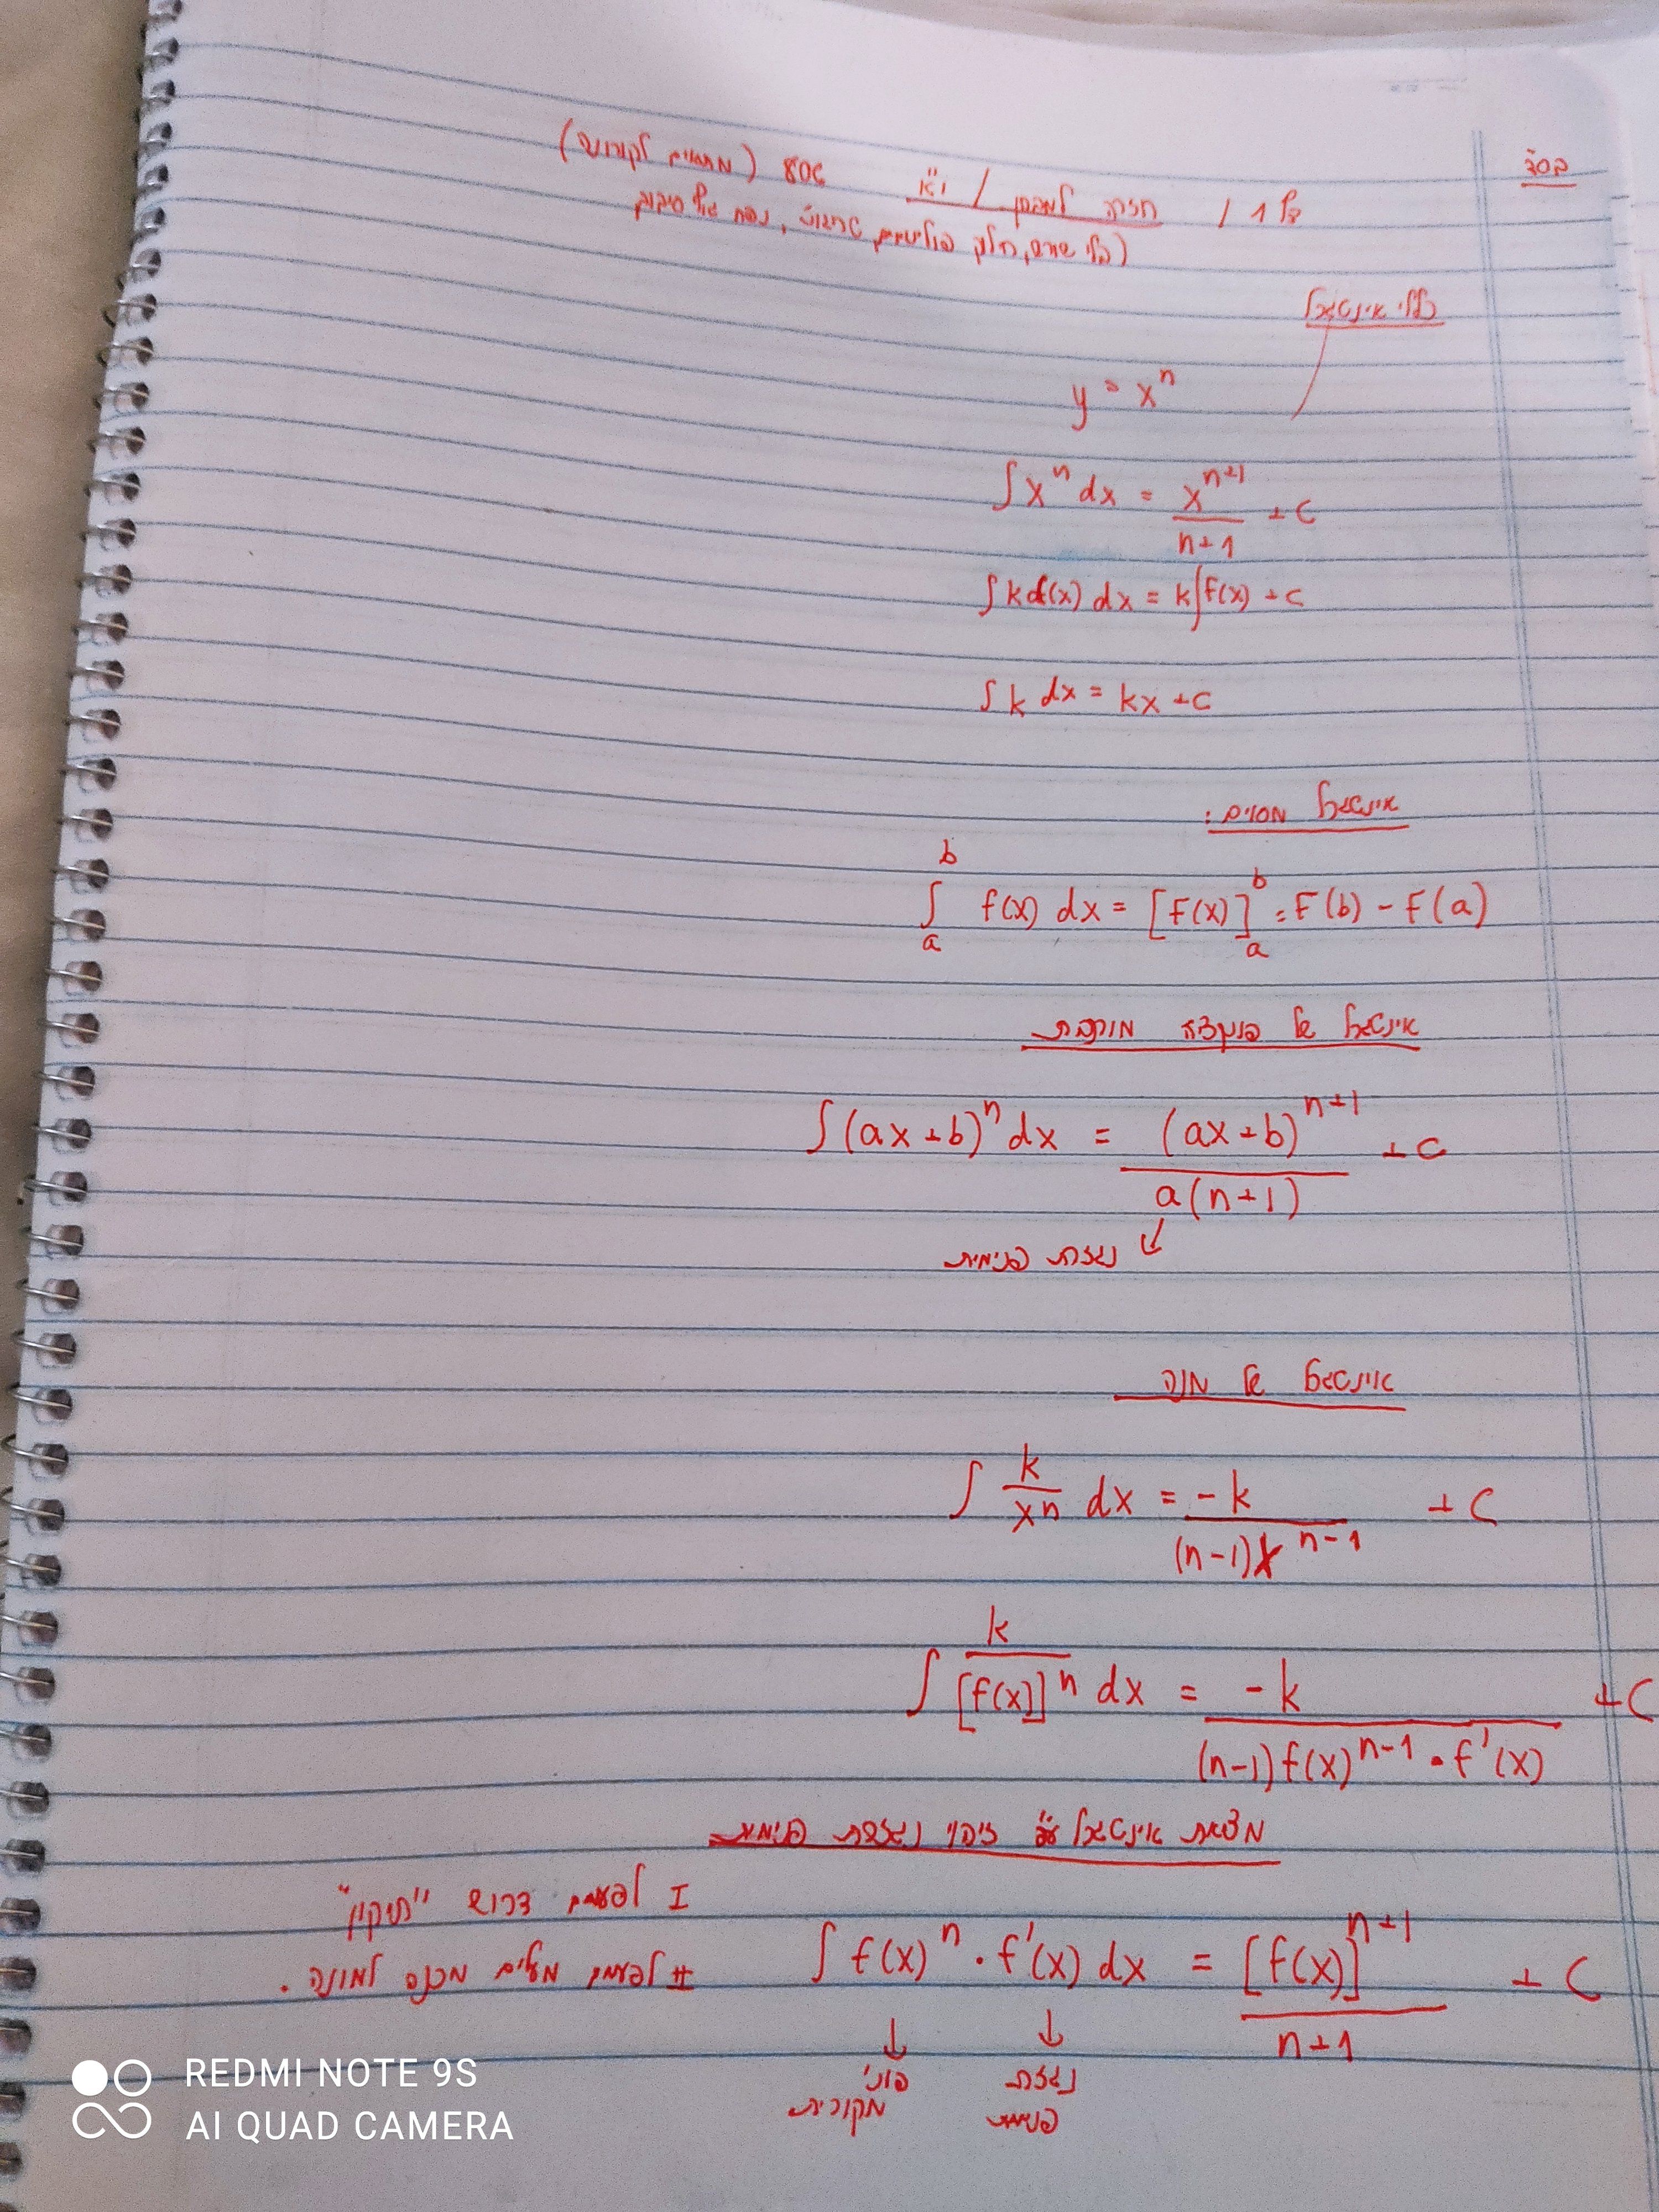 בסד
דף 1 / חזרה למבחן / י"א 806 (מתאים לקורונה)
(בלי שורש, חלק פולינומים, נפח גוף סיבוב
כללי אינטגרל
y = xⁿ
∫xⁿ dx = xⁿ⁺¹/(n+1) + c
∫k f(x) dx = k∫f(x) + c
∫k dx = kx + c
אינטגרל מסוים:
∫ₐᵇ f(x) dx = [F(x)]ₐᵇ = F(b) - F(a)
אינטגרל של פונקציה מורכבת
∫(ax+b)ⁿ dx = (ax+b)ⁿ⁺¹/a(n+1) + c
נגזרת פנימית
אינטגרל של מנה
∫ k/xⁿ dx = -k/(n-1)xⁿ⁻¹ + C
∫ k/[f(x)]ⁿ dx = -k/(n-1)f(x)ⁿ⁻¹·f'(x) + C
מציאת אינטגרל ע"י זיהוי נגזרת פנימית
I לפעמים דרוש "תיקון"
II לפעמים מעלים מכנה למונה.
∫f(x)ⁿ·f'(x) dx = [f(x)]ⁿ⁺¹/(n+1) + C
פונ' מקורית
נגזרת פנימית
REDMI NOTE 9S
AI QUAD CAMERA